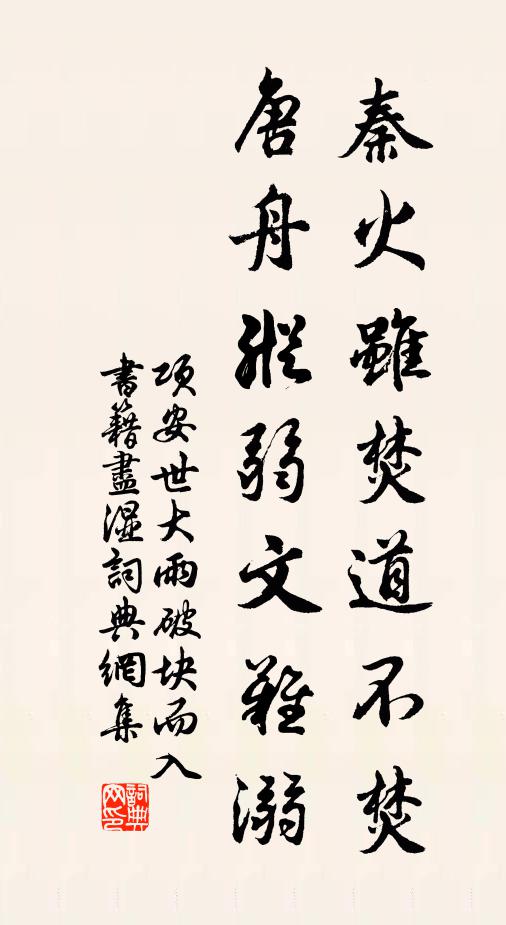 秦火雖焚道不焚
唐舟縱弱文難溺
項安世大雨破块而入
書籍盡湿詞典網集
詞典网印